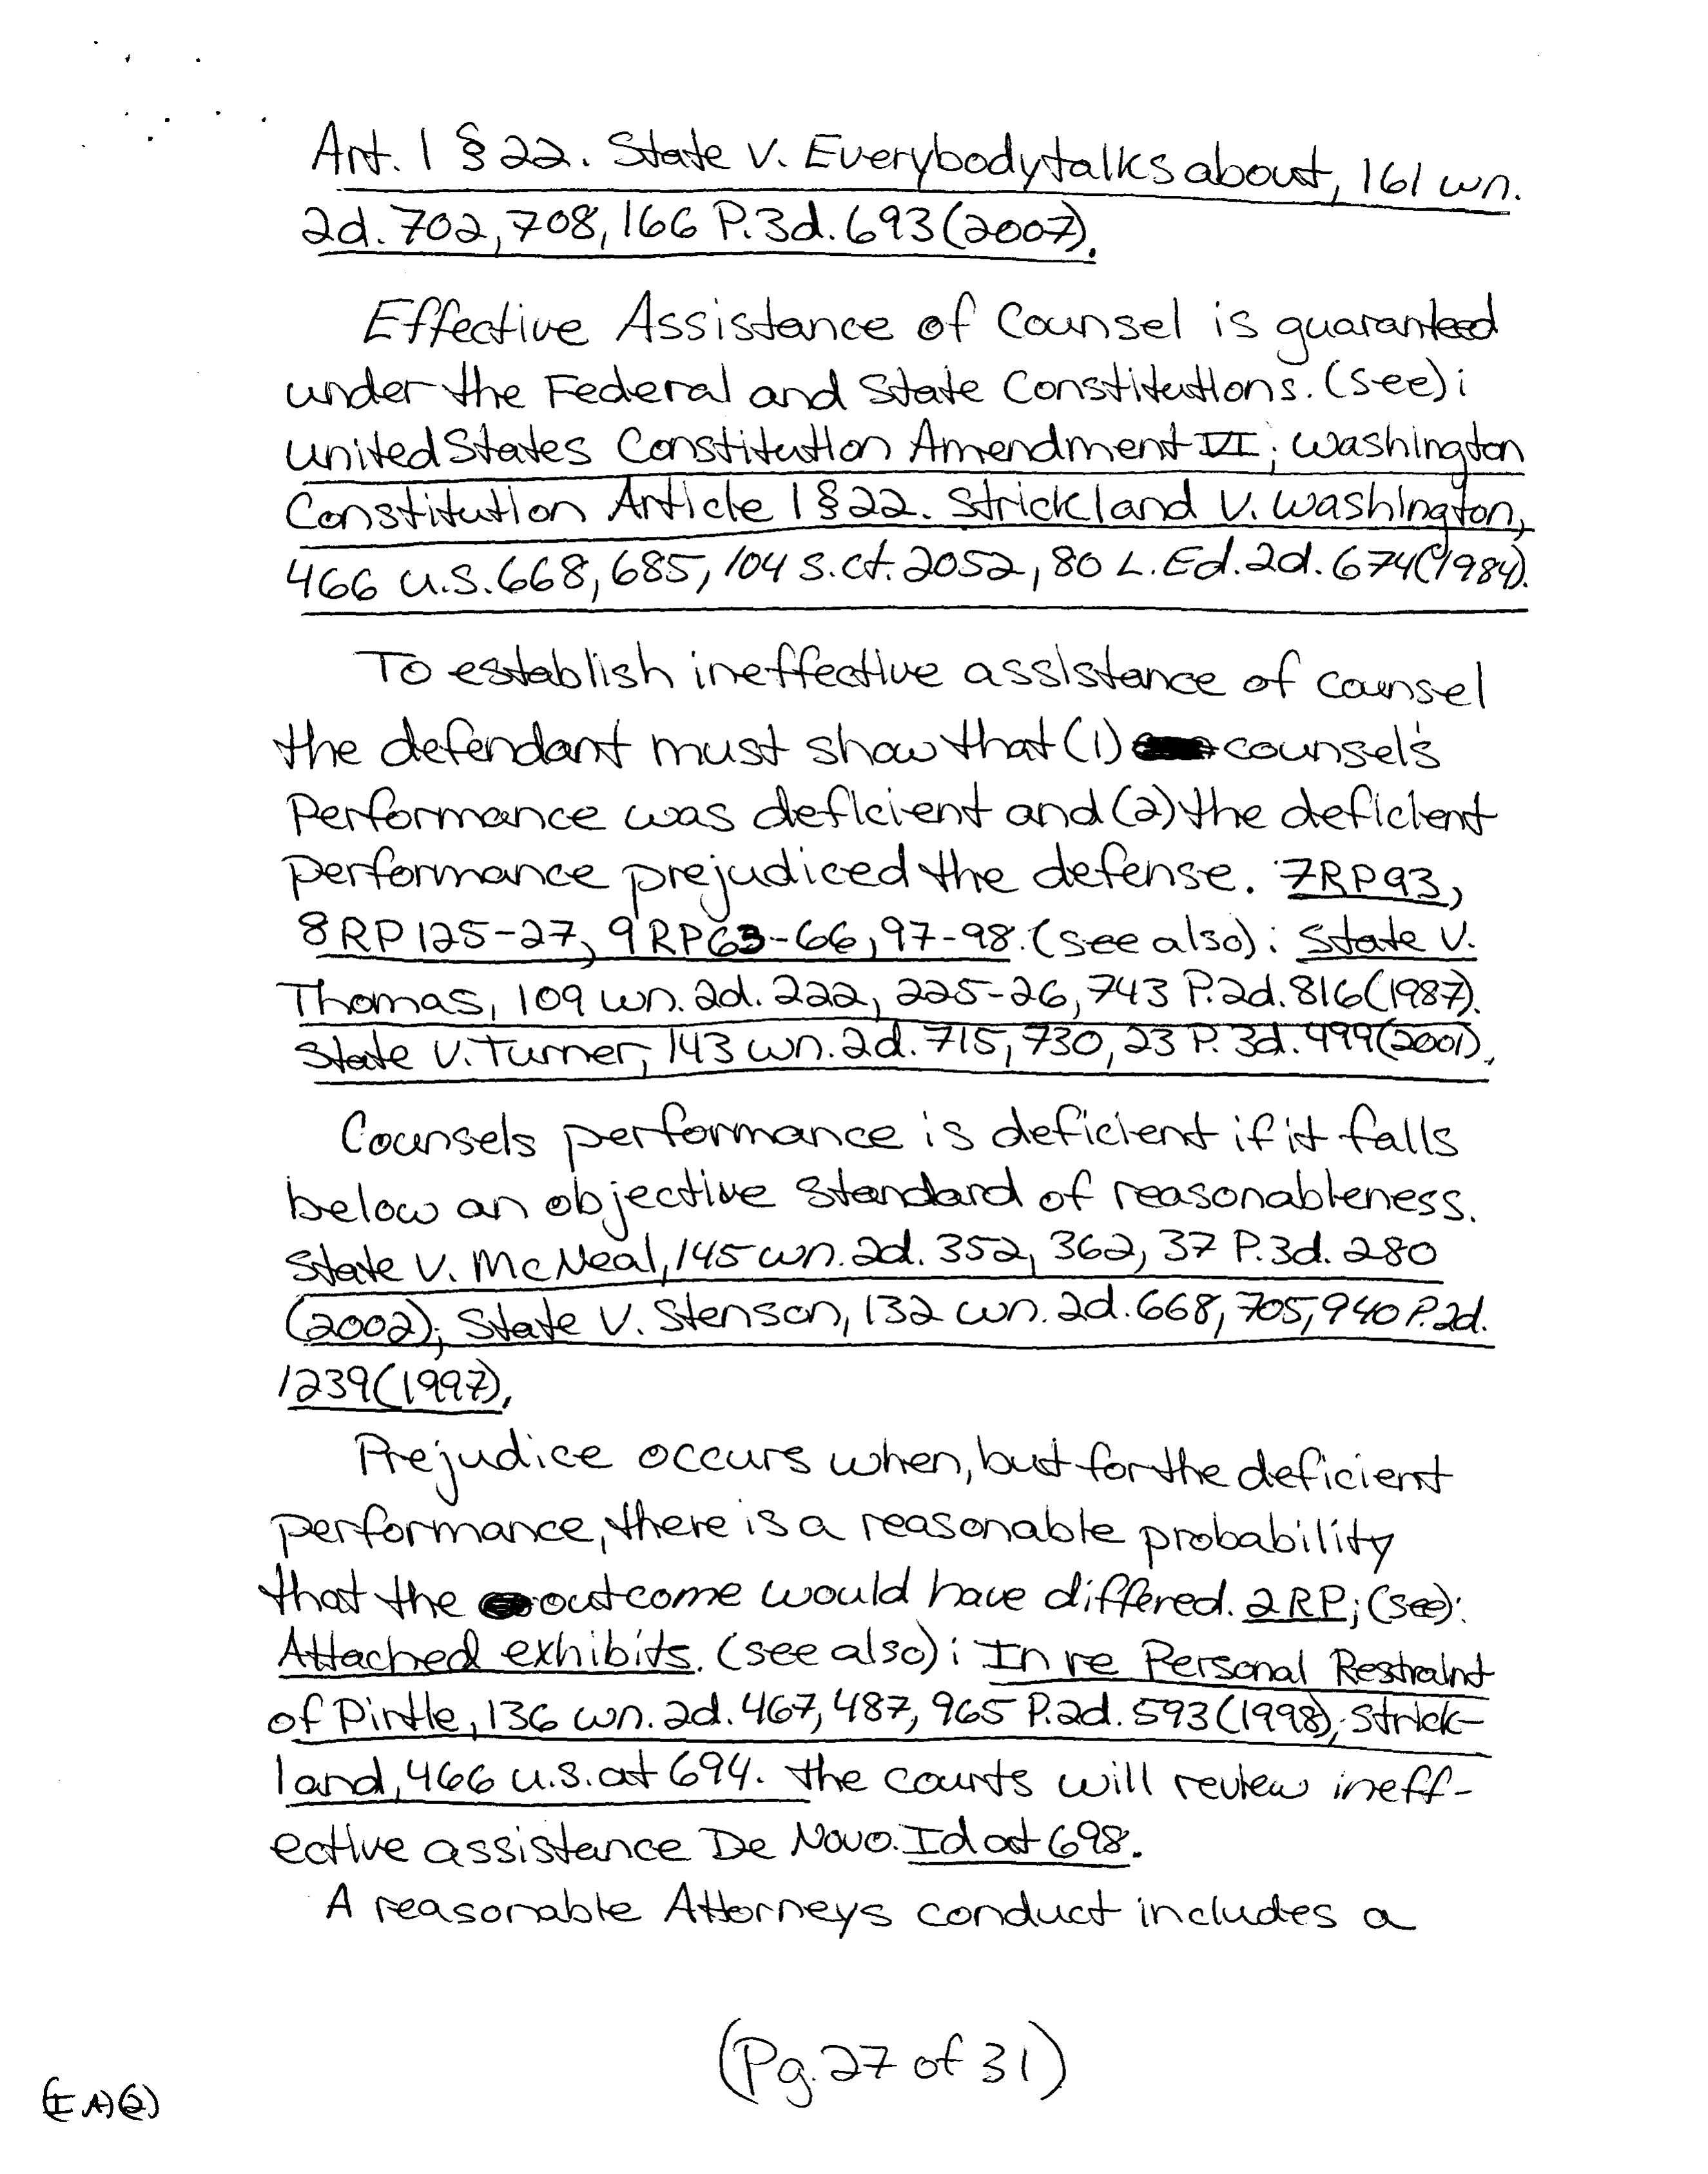 Art. 1 § 22. State v. Everybodytalksabout, 161 wn.
2d. 702, 708, 166 P.3d. 693 (2007).
Effective Assistance of Counsel is guaranteed
under the Federal and State Constitutions. (see):
United States Constitution Amendment VI; Washington
Constitution Article 1 § 22. Strickland v. Washington,
466 U.S. 668, 685, 104 S.ct. 2052, 80 L.Ed.2d. 674 (1984).
To establish ineffective assistance of counsel
the defendant must show that (1) counsel's
Performance was deficient and (2) the deficient
performance prejudiced the defense. 7RP93,
8RP125-27, 9RP63-66, 97-98. (see also): State v.
Thomas, 109 wn.2d. 222, 225-26, 743 P.2d. 816 (1987).
State v. Turner, 143 wn.2d. 715, 730, 23 P.3d. 499 (2001).
Counsels performance is deficient if it falls
below an objective standard of reasonableness.
State v. McNeal, 145 wn.2d. 352, 362, 37 P.3d. 280
(2002); State v. Stenson, 132 wn.2d. 668, 705, 940 P.2d.
1239 (1997).
Prejudice occurs when, but for the deficient
performance, there is a reasonable probability
that the outcome would have differed. 2RP; (see):
Attached exhibits. (see also): In re Personal Restraint
of Pirtle, 136 wn.2d. 467, 487, 965 P.2d. 593 (1998); Strick-
land, 466 U.S. at 694. the courts will review ineff-
ective assistance De Novo. Id at 698.
A reasonable Attorneys conduct includes a
(Pg. 27 of 31)
(I A)(2)